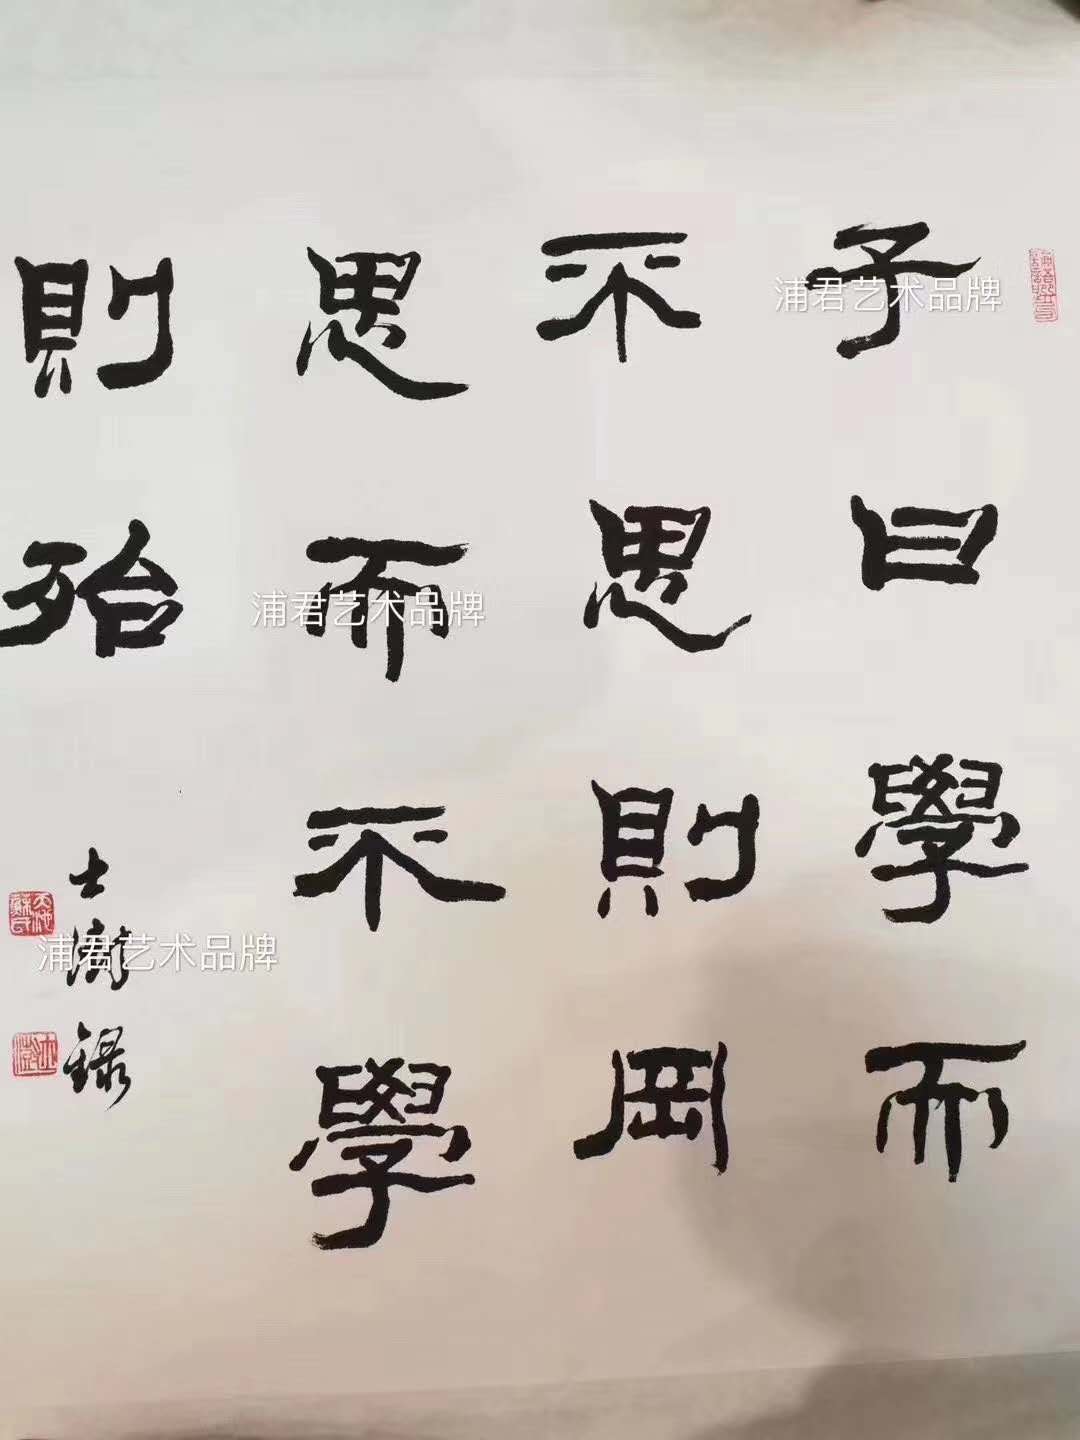 子曰學而
不思則罔
思而不學
則殆
士澍錄
浦君艺术品牌
浦君艺术品牌
浦君艺术品牌